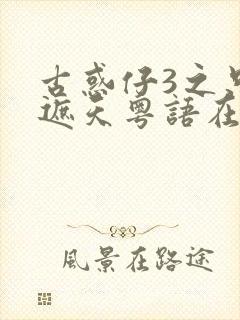 古惑仔3之只
遮天粤語在
風景在路途